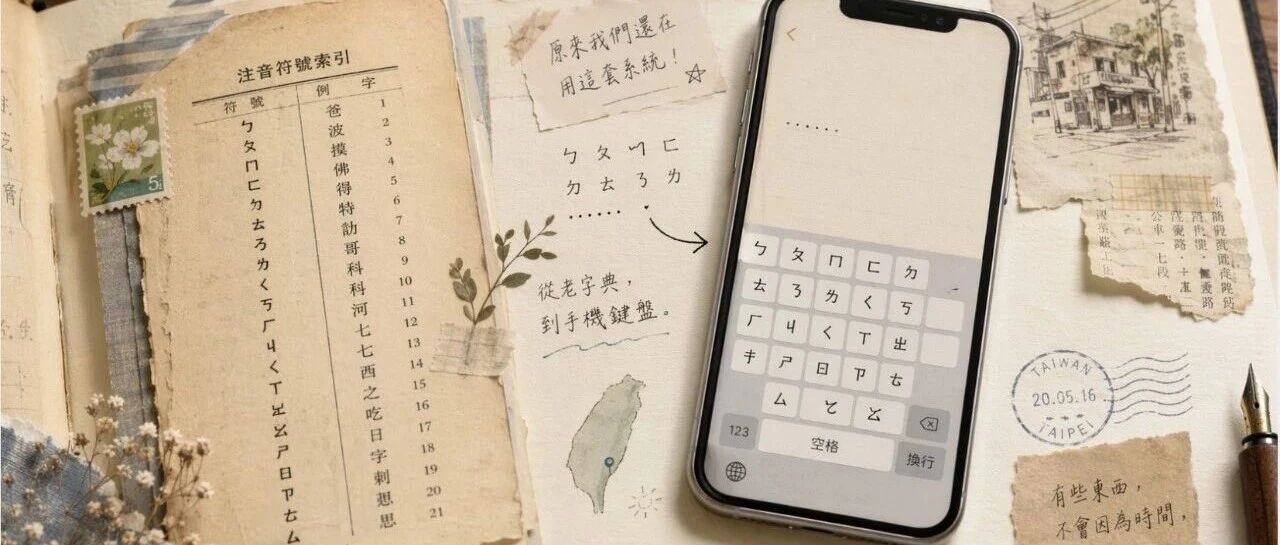 注音符號索引
符號 例字
ㄅ 爸 1
ㄆ 波 2
ㄇ 摸 3
ㄈ 佛 4
ㄉ 得 5
ㄊ 特 6
ㄋ 7
ㄌ 哥 8
ㄑ 科 9
ㄎ 科 10
ㄏ 河 11
ㄐ 七 12
ㄑ 七 13
ㄒ 西 14
之 15
吃 16
ㄕ 日 17
ㄖ 字 18
ㄗ 刺 19
ㄊ 想 20
ㄙ 思 21
5
原來我們還在
用這套系統!
ㄅ ㄆ ㄇ ㄈ
ㄉ ㄊ ㄋ ㄌ
······
從老字典,
到手機鍵盤。
······
ㄅ ㄆ ㄇ ㄈ ㄉ
ㄊ ㄋ ㄌ ㄑ ㄎ
ㄏ ㄐ ㄑ ㄒ ㄓ
ㄕ ㄖ ㄗ
ㄙ ㄛ
123 空格 換行
TAIWAN
20.05.16
TAIPEI
有些東西,
不會因為時間,